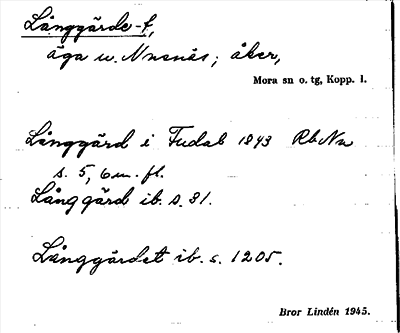 Långgärde-t,
äga u. Nusnäs; åker,
Mora sn o. tg, Kopp. l.
Långgärd i Fudal 1843 Rb Nu
s. 5, 6 m. fl.
Långgärd ib. s. 31.
Långgärdet ib. s. 1205.
Bror Lindén 1945.